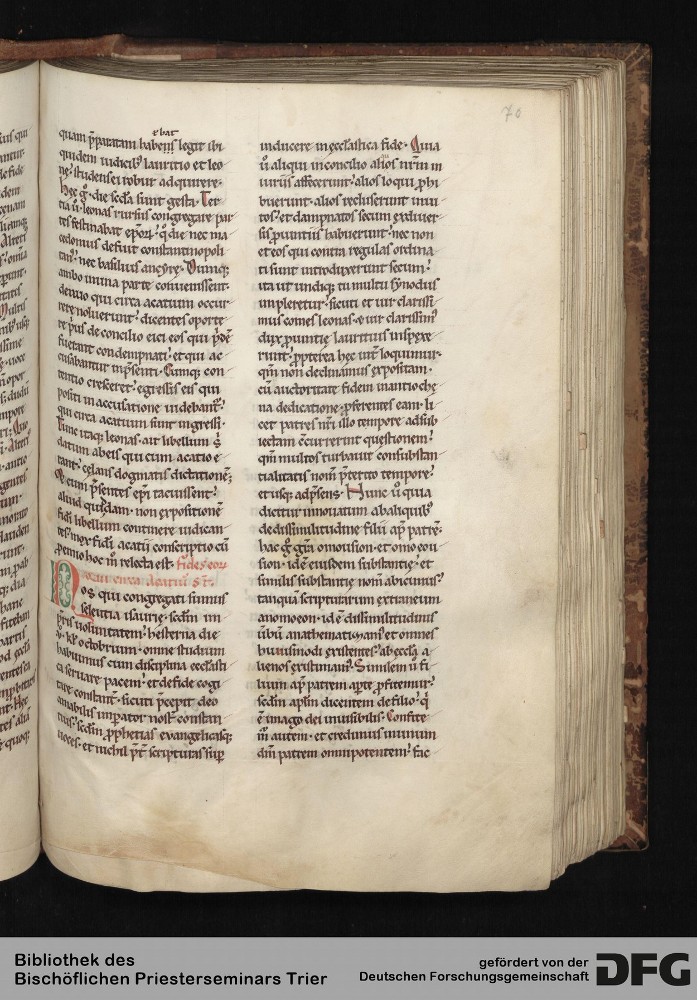 70
ebat
quam p̄paratam habens legit ibi
quidem iudicib; lauritio et leo
ne. studens ei robur adquirere.
hec g̊ die sc̄da sunt gesta. Ter
tia ū leonas rursus congregare par
tes festinabat ep̄oꝝ. q̊ die nec ma
cedonius defuit constantinopoli
tan. nec basilius ancyre. Cumq;
ambo in una parte convenissent.
denuo qui circa acatium occur
rere noluerunt. dicentes oporte
re p̄us de concilio eici eos qui p̄dē
fuerant condempnati. et qui ac
cusabantur in p̄senti. Cumq; con
tentio cresceret. egressi s̄ eis qui
positi in accusatione videbant̄.
qui circa acatium sunt ingressi.
Tunc itaq; leonas ait libellum s̄
datum ab eis qui cum acatio e
rant. celans dogmatis dictationē.
cum p̄sentes ep̄i tacuissent.
aliud quiddam non expositionē
fidei libellum continere iudican
tes. mox fidei acatii conscriptio cū
p̄emio hoc m̊ relecta est. fides eoꝝ
qui circa acatiū s̄t.
Nos qui congregati sumus
seleutia isaurie. sc̄dm im
p̄tis voluntatem. hesterna die
v. kl' octobrium. omne studium
habuimus cum disciplina ecclesiasti
ca servare pacem. et de fide cogi
tare constant̄. sicuti p̄cepit deo
amabilis imperator nost̄ constan
tius. sc̄dm p̄phetias evangelicasq;
voces. et nichil p̄t scripturas sup̄
inducere in eccl̄astica fide. Quia
ū aliqui in concilio alios nr̄m in
iuriis affecerunt. alios loqui p̄hi
buerunt. alios recluserunt invi
tos. et dampnatos secum ex diver
sis p̄vintiis habuerunt. nec non
et eos qui contra regulas ordina
ti sunt introduxerunt secum.
ita ut undiq; tumultu synodus
impleretur. sicuti et vir clarissi
mus comes leonas. et vir clarissim̄
dux p̄vintie lauritius inspexe
runt. p̄pterea hec unt̄ loquimur.
qm̄ non declinamus expositam
cū auctoritate fidem in antioche
na dedicatione. p̄ferentes eam. li
cet patres nr̄i illo tempore ad sub
iectam ēcurrerint questionem.
qm̄ multos turbavit consubstan
tialitatis nom̄ p̄terito tempore.
et usq; ad p̄sens. Nunc ū quia
dicitur innovatum ab aliquib;
de dissimilitudine filii ap̄ patrē.
hac g̊ gr̄a omousion. et omoeou
sion. id ē eiusdem substantie. et
similis substantie nom̄ abicimus.
tanquā scripturarum extraneum
anomoeon. id ē dissimilitudinis
ūbū anathematizam̄. et omnes
huiusmodi existentes. ab eccl̄a a
lienos existimam̄. Similem ū fi
lium ap̄ patrem ap̄te p̄fitemur.
sc̄dm ap̄lm dicentem de filio. q̄
ē imago dei invisibilis. Confite
m̄ autem. et credimus in unum
dm̄ patrem omnipotentem. fac
Bibliothek des
Bischöflichen Priesterseminars Trier
gefördert von der
Deutschen Forschungsgemeinschaft
DFG